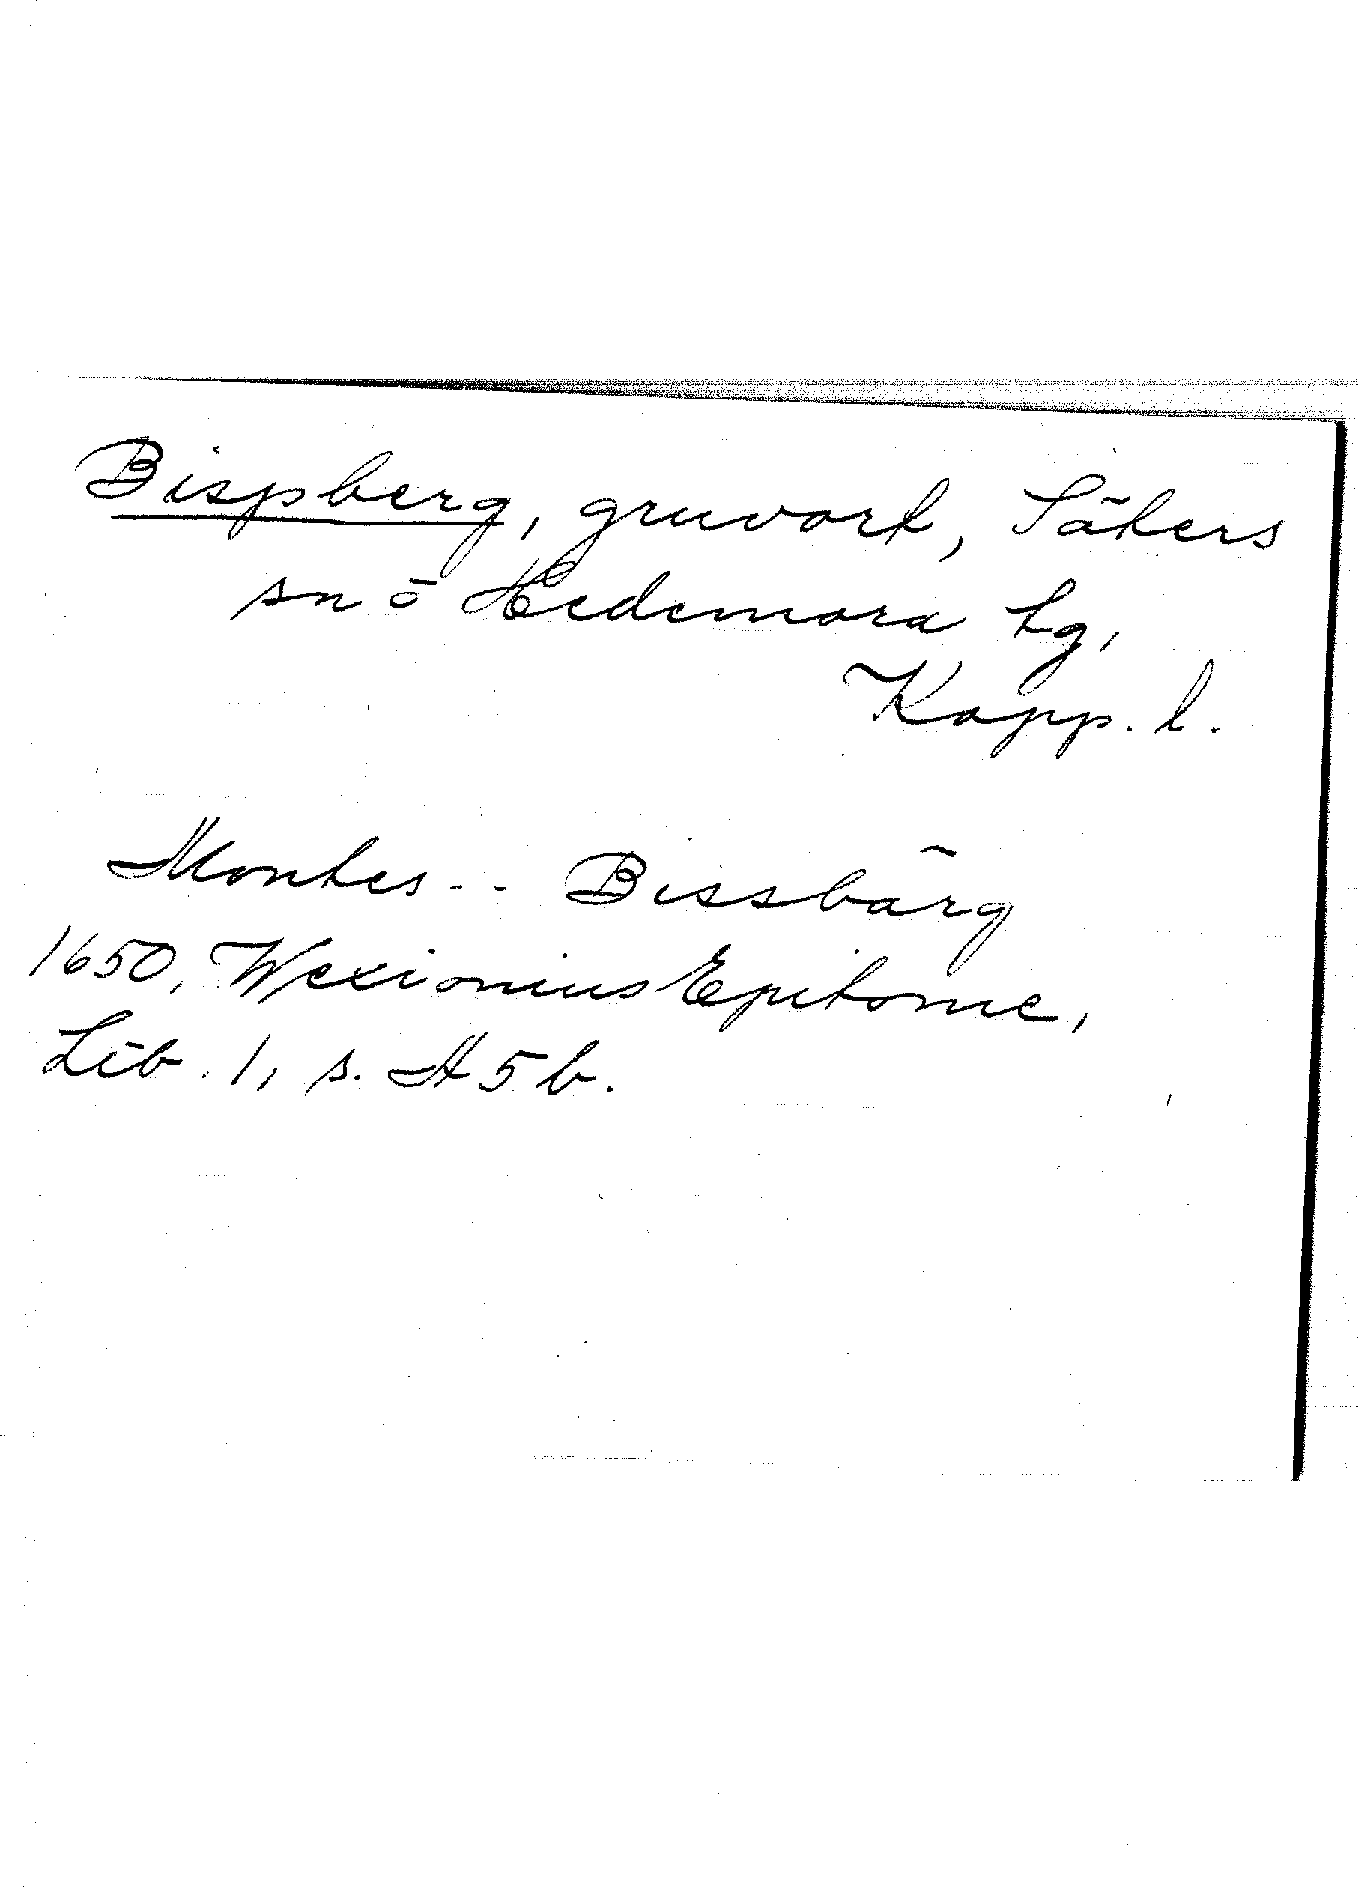 Bispberg, gruvort, Säters
sn ō Hedemora tg,
Kopp. l.
Montes - - Bissbärg
1650, Wexionius Epitome,
Lib. 1, s. H 5 b.